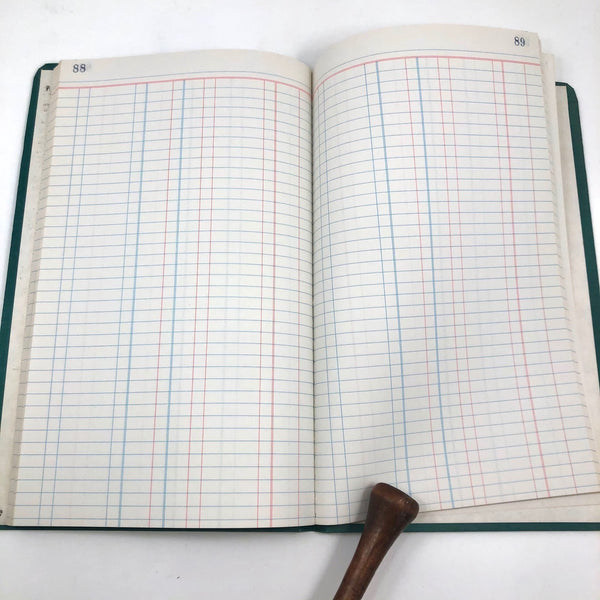 88
89